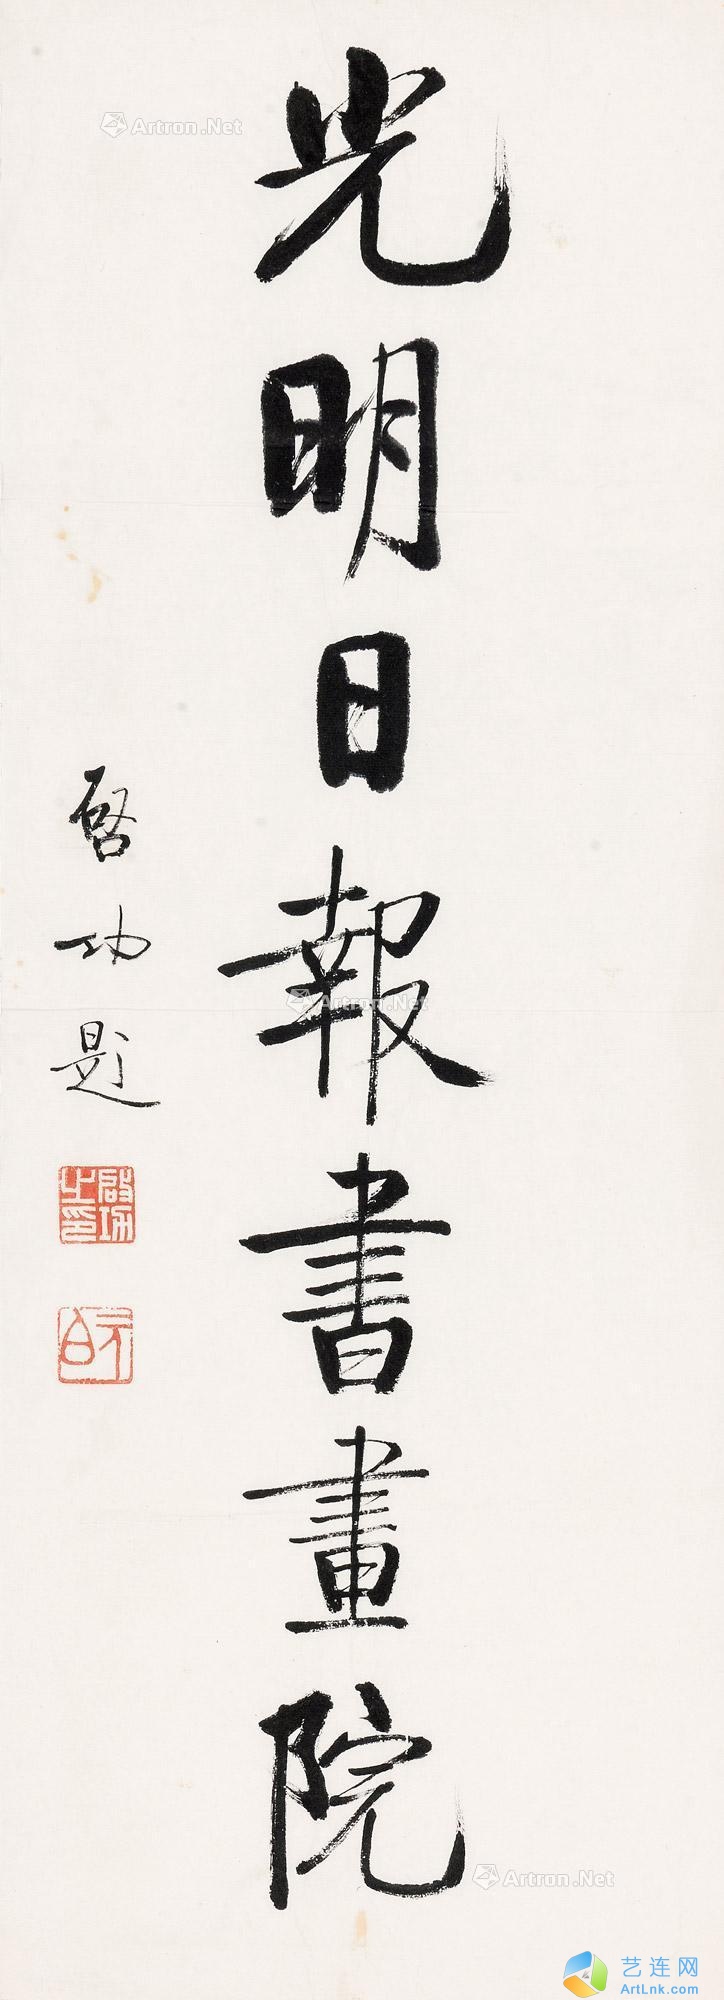 光明日報書畫院
啓功題
啟功之印
元白
Artron.Net
Artron.Net
Artron.Net
艺连网
ArtLnk.com